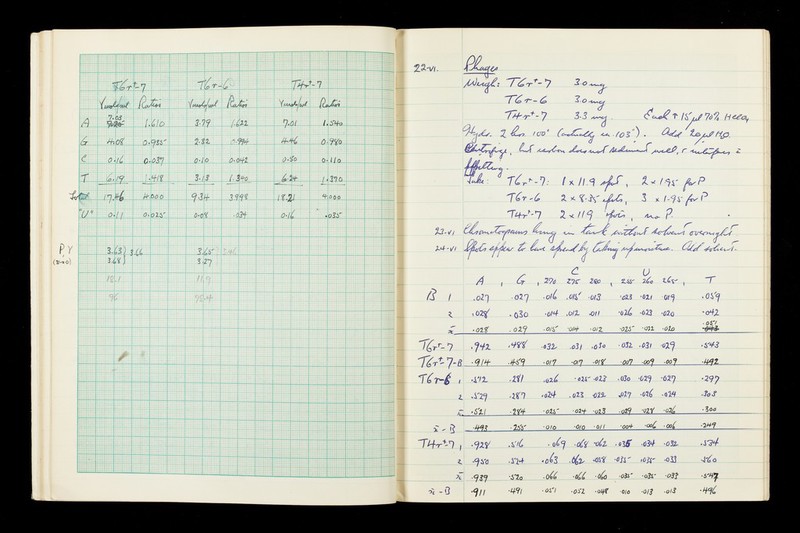 T6r⁺-7 T6r-6 T4r⁺-7
Yundified Ratios Yundified Ratios Yundified Ratios
A 7.03 1.610 3.79 1.622 7.01 1.540
G 4.08 0.935 2.32 .994 4.46 0.980
C 0.16 0.037 0.10 0.042 0.50 0.110
T 6.19 1.418 3.13 1.340 6.24 1.370
Total 17.46 4.000 9.34 3.998 18.21 4.000
"U" 0.11 0.025 0.08 .034 0.16 .035
P γ 3.63 3.66 3.65
3.68 3.27
22-VI. Phages
Weigh: T6r⁺-7 3.0 mg
T6r-6 3.0 mg
T4r⁺-7 3.3 mg. Each + 15 µl 70% HClO₄
Hydr. 2 hrs 100° (actually in 103°). Add 20 µl H₂O.
Centrifuge, but carbon does not sediment well,
Take: T6r⁺-7: 1 x 11.9 spot, 2 x 1.95 for P
T6r-6 2 x 8.35 spots, 3 x 1.95 for P
T4r⁺-7 2 x 11.9 spots, no P.
23-VI Chromatograms hung in tank without solvent overnight
24-VI Spots appear to have spread by taking up moisture. Add solvent.
C U
A , G , 270 275 280 , 255 260 265 , T
B 1 .027 .027 .016 .015 .013 .023 .021 .019 .059
2 .028 .030 .014 .012 .011 .026 .023 .020 .042
x̄ .028 .029 .015 .014 .012 .025 .022 .020 .051
T6r⁺-7 .942 .488 .032 .031 .030 .032 .031 .029 .543
T6r⁺-7-B .914 .459 .017 .017 .018 .007 .009 .009 .492
T6r-6 1 .512 .281 .026 .025 .023 .030 .029 .027 .297
2 .529 .287 .024 .023 .022 .027 .026 .024 .303
x̄ .521 .284 .025 .024 .023 .029 .028 .026 .300
x̄ - B .493 .255 .010 .010 .011 .004 .006 .006 .249
T4r⁺-7 1 .928 .516 .069 .068 .062 .035 .034 .032 .534
2 .950 .524 .063 .062 .058 .035 .035 .033 .560
x̄ .939 .520 .066 .066 .060 .035 .035 .033 .547
x̄ - B .911 .491 .051 .052 .048 .010 .013 .013 .496